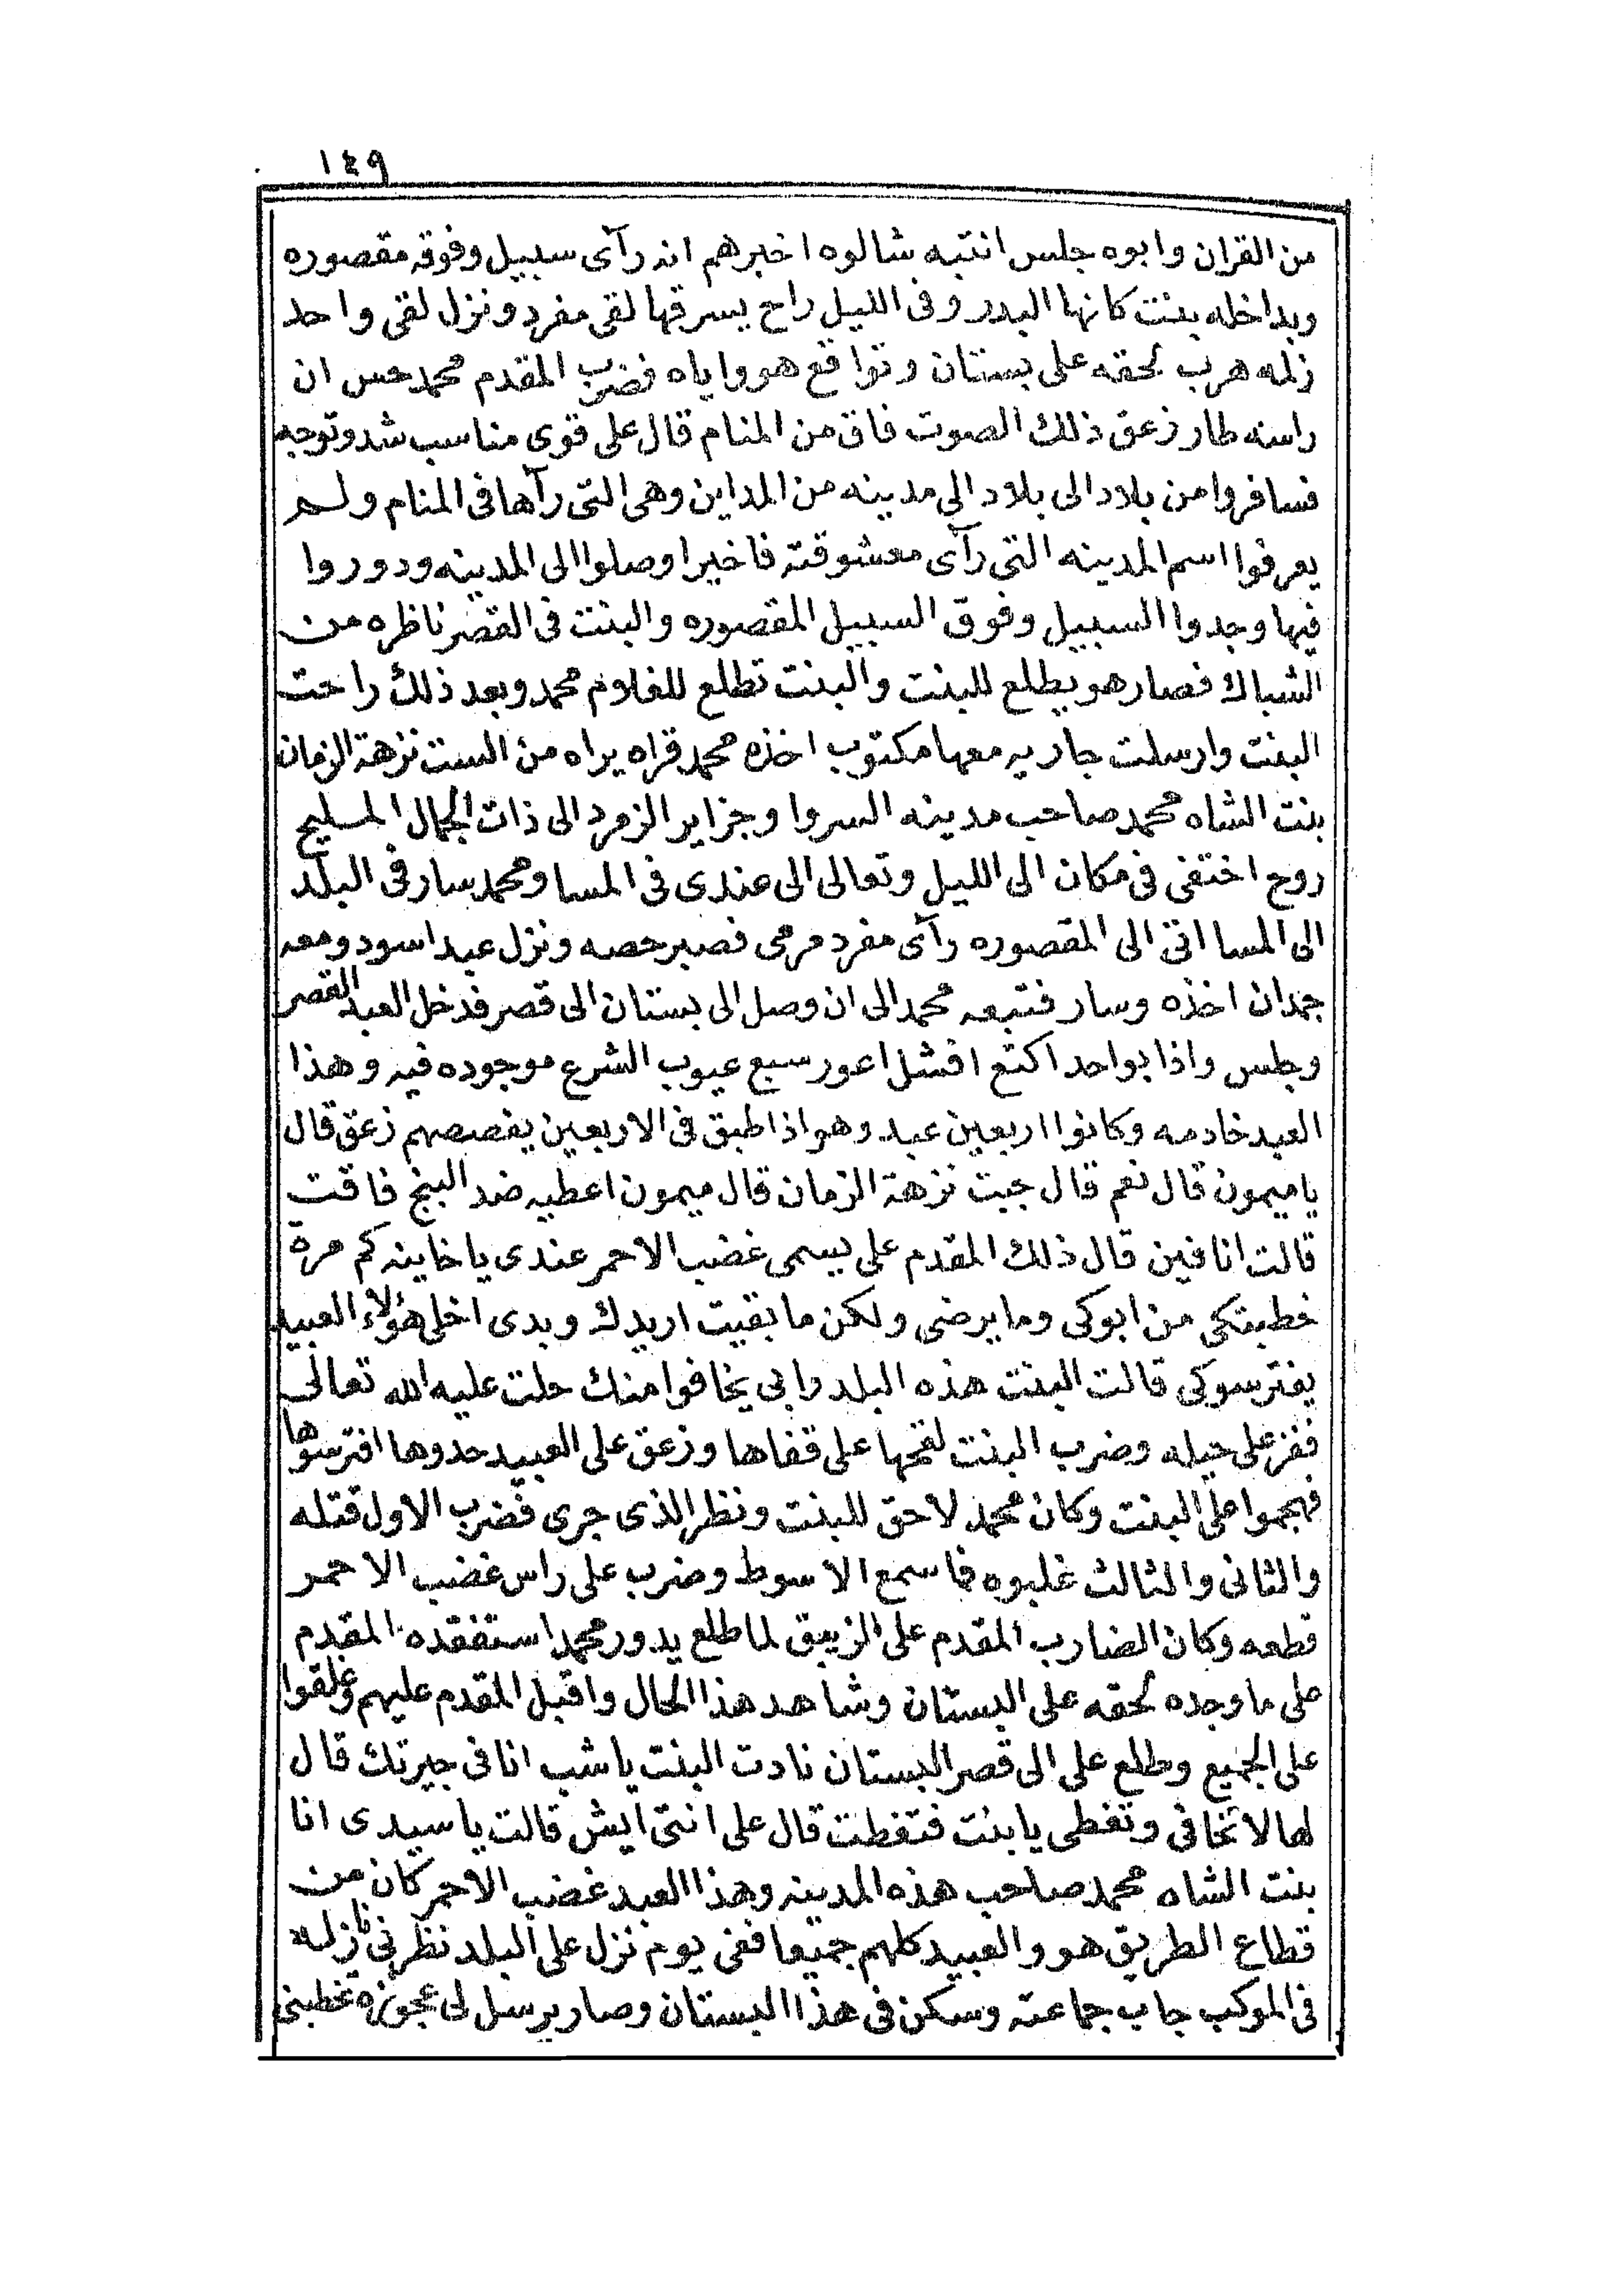 ١٤٩
من القران وابوه جلس انتبه شالوه اخبرهم انه رآى سبيل وفوقه مقصوره
وبداخله بنت كانها البدر وفى الليل راح يسرقها لقى مفرد ونزل لقى واحد
زلمه هرب لحقه على بستان وتواقع هو واياه فضرب المقدم محمد حس ان
راسه طار زعق ذلك الصوت فاق من المنام قال على قوى مناسب شد وتوجه
فسافروا من بلاد الى بلاد الى مدينه من المداين وهى التى رآها فى المنام ولم
يعرفوا اسم المدينه التى رآى معشوقته فاخيرا وصلوا الى المدينه ودوروا
فيها وجدوا السبيل وفوق السبيل المقصوره والبنت فى القصر ناظره من
الشباك فصار هو يطلع للبنت والبنت تطلع للغلام محمد وبعد ذلك راحت
البنت وارسلت جاريه معها مكتوب اخذه محمد قراه يراه من الست نزهة الزمان
بنت الشاه محمد صاحب مدينه السروا وجزاير الزمرد الى ذات الجمال المليح
روح اختفى فى مكان الى الليل وتعالى الى عندى فى المسا ومحمد سار فى البلد
الى المسا اتى الى المقصوره رآى مفرد مرمى فصبر حصه ونزل عبد اسود ومعه
جمدان اخذه وسار فتبعه محمد الى ان وصل الى بستان الى قصر فدخل العبد القصر
وجلس واذا بواحد اكتع افشل اعور سبع عيوب الشرع موجوده فيه وهذا
العبد خادمه وكانوا اربعين عبد وهو اذا طبق فى الاربعين يفصصهم زعق قال
يا ميمون قال نعم قال جبت نزهة الزمان قال ميمون اعطيه ضد البنج فاقت
قالت انا فين قال ذلك المقدم على بيسمى غضب الاحمر عندى يا خاينه كم مرة
خطبتكى من ابوكى وما يرضى ولكن ما بقيت اريدك وبدى اخلى هؤلاء العبيد
يفترسوكى قالت البنت هذه البلد وابى يخافوا منك حلت عليه الله تعالى
ففز على حيله وضرب البنت لقحها على قفاها وزعق على العبيد خدوها افترسوها
فهجموا على البنت وكان محمد لاحق للبنت ونظر الذى جرى فضرب الاول قتله
والثانى والثالث غلبوه فما سمع الا سوط وضرب على راس غضب الاحمر
قطعه وكان الضارب المقدم على الزيبق لما طلع يدور محمد استفقده المقدم
على ما وجده لحقه على البستان وشاهد هذا الحال واقبل المقدم عليهم وغلقوا
على الجميع وطلع على الى قصر البستان نادت البنت يا شب انا فى جيرتك قال
لها لا تخافى وتغطى يا بنت فتغطت قال على انتى ايش قالت يا سيدى انا
بنت الشاه محمد صاحب هذه المدينه وهذا العبد غضب الاحمر كان من
قطاع الطريق هو والعبيد كلهم جميعا ففى يوم نزل على البلد نظرنى نازله
فى الموكب جاب جماعته وسكن فى هذا البستان وصار يرسل لى عجوزة تخطبنى